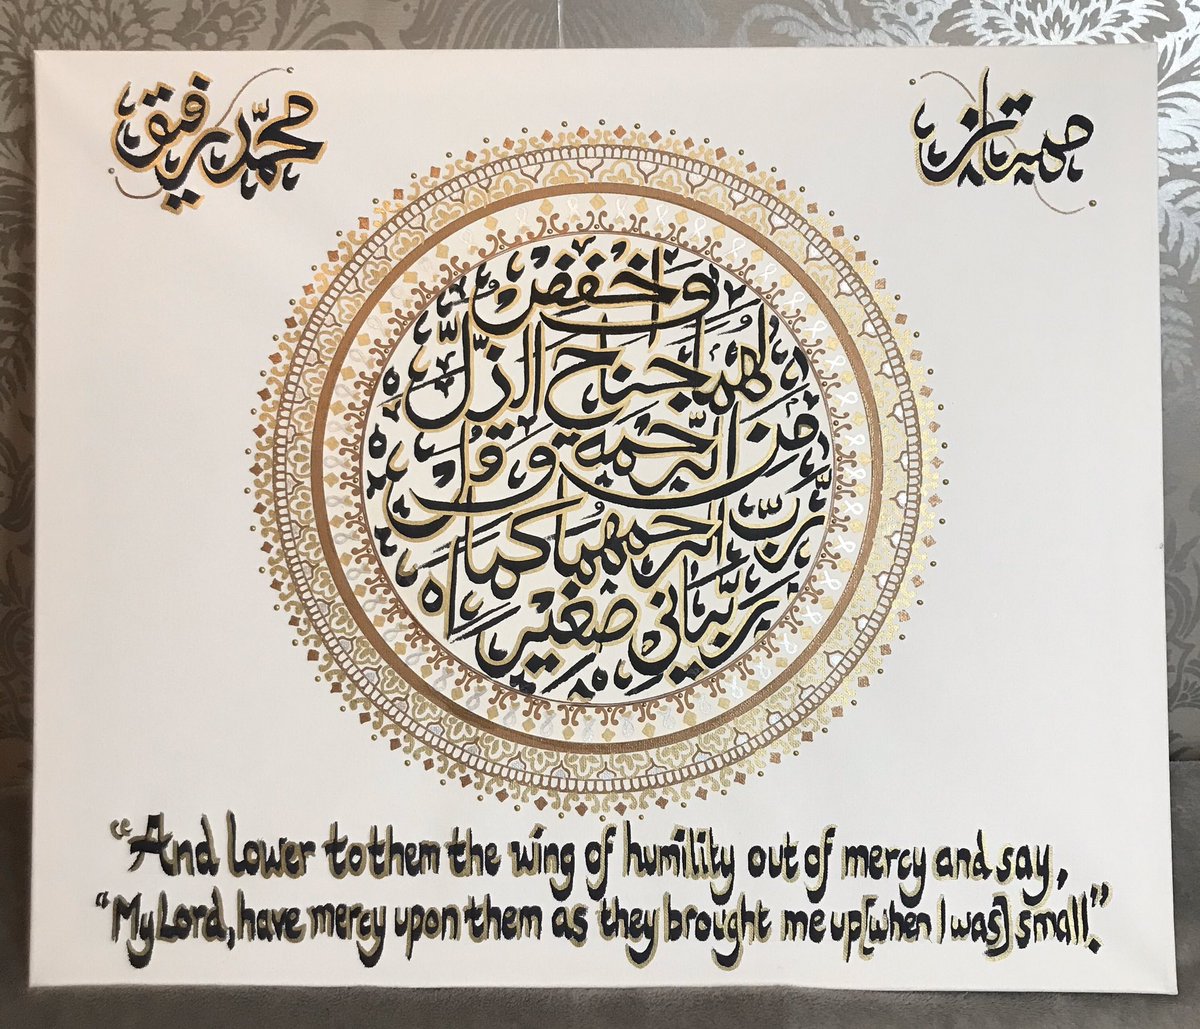 ممتاز
محمد رفيق
وَاخْفِضْ
لَهُمَا جَنَاحَ الذُّلِّ
مِنَ الرَّحْمَةِ وَقُل
رَّبِّ ارْحَمْهُمَا كَمَا
رَبَّيَانِي صَغِيرًا
"And lower to them the wing of humility out of mercy and say,
"My Lord, have mercy upon them as they brought me up [when I was] small."